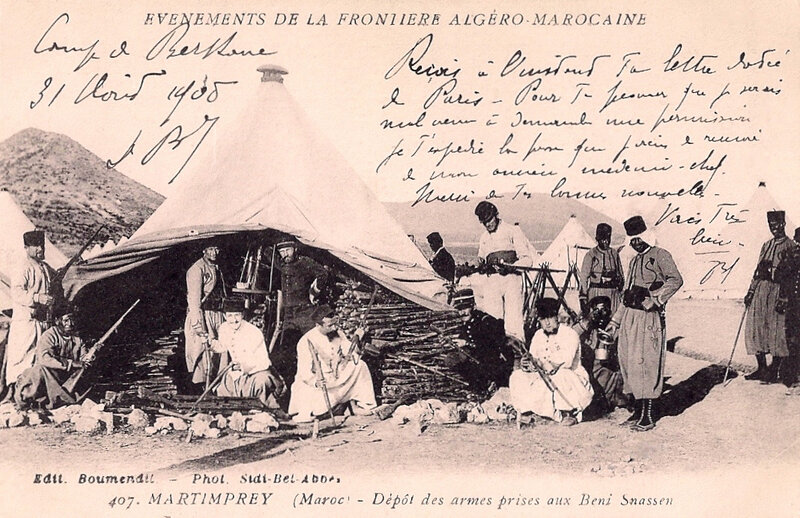 EVENEMENTS DE LA FRONTIERE ALGÉRO-MAROCAINE
Camp de Berkane
31 Août 1908
Reçois à l'instant Ta lettre
de Paris - Pour Te prouver que je serais
mal venu à demander une permission
je T'expédie la que je reçois
de mon médecin-chef.
Merci de Tes bonnes nouvelles.
Vais Très
bien -
Edit. Boumendil - Phot. Sidi-Bel-Abbès
407. MARTIMPREY (Maroc) - Dépôt des armes prises aux Beni Snassen